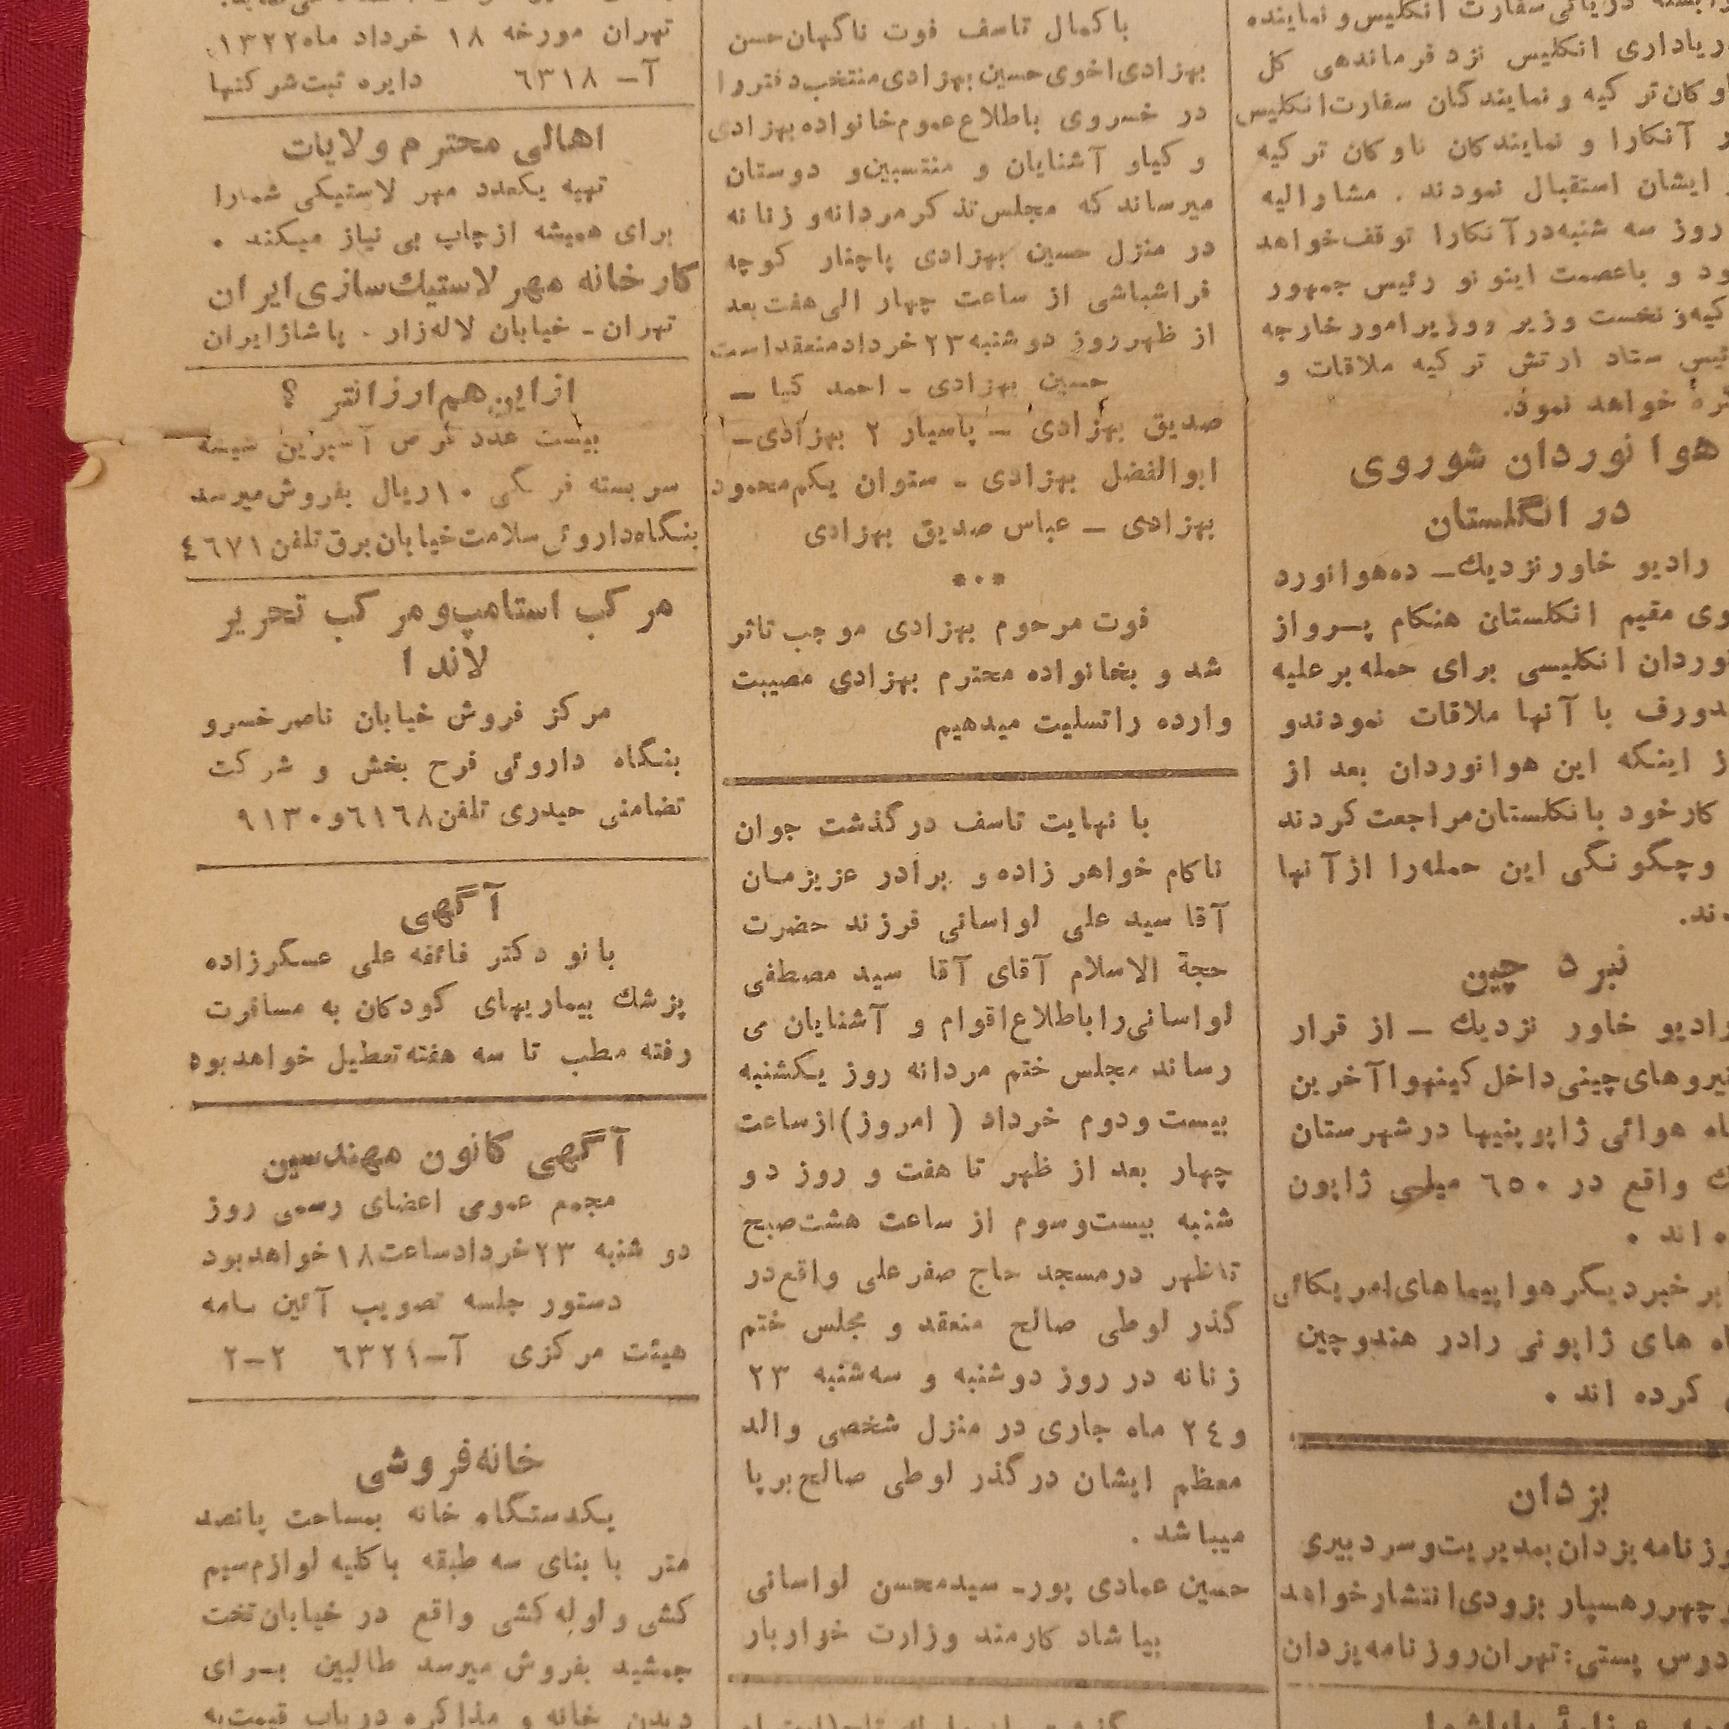 وابسته دریائی سفارت انگلیس و نماینده
ریاداری انگلیس نزد فرماندهی کل
اوکان ترکیه و نمایندگان سفارت انگلیس
ر آنکارا و نمایندگان ناوکان ترکیه
ایشان استقبال نمودند . مشارالیه
روز سه شنبه در آنکارا توقف خواهد
ود و با عصمت اینونو رئیس جمهور
کیه و نخست وزیر و وزیر امور خارجه
ئیس ستاد ارتش ترکیه ملاقات و
خواهد نمود.
هوانوردان شوروی
در انگلستان
رادیو خاور نزدیك ـ ده هوانورد
وی مقیم انگلستان هنگام پرواز
وردان انگلیسی برای حمله بر علیه
دورف با آنها ملاقات نمودند و
ز اینکه این هوانوردان بعد از
کار خود بانگلستان مراجعت کردند
وچگونگی این حمله را از آنها
ند.
نبرد چین
رادیو خاور نزدیك ـ از قرار
نیروهای چینی داخل کینهوا آخرین
اه هوائی ژاپونیها در شهرستان
ك واقع در ٦٥٠ میلی ژاپون
ه اند .
بر خبر دیگر هواپیماهای امریکائی
اه های ژاپونی را در هندوچین
کرده اند .
یزدان
وزنامه یزدان بمدیریت و سردبیری
چهر رهسپار بزودی انتشار خواهد
درس پستی: تهران روزنامه یزدان
با کمال تاسف فوت ناگهان حسن
بهزادی اخوی حسین بهزادی منتخب دفتر را
در خسروی باطلاع عموم خانواده بهزادی
و کیاو آشنایان و منتسبین و دوستان
میرساند که مجلس تذکر مردانه و زنانه
در منزل حسین بهزادی پاچنار کوچه
فراشباشی از ساعت چهار الی هفت بعد
از ظهر روز دوشنبه ۲۳ خرداد منعقد است
حسین بهزادی ـ احمد کیا ـ
صدیق بهزادی ـ پاسیار ۲ بهزادی ـ
ابوالفضل بهزادی ـ ستوان یکم محمود
بهزادی ـ عباس صدیق بهزادی
***
فوت مرحوم بهزادی موجب تاثر
شد و بخانواده محترم بهزادی مصیبت
وارده را تسلیت میدهیم
با نهایت تاسف درگذشت جوان
ناکام خواهر زاده و برادر عزیزمان
آقا سید علی لواسانی فرزند حضرت
حجة الاسلام آقای آقا سید مصطفی
لواسانی را باطلاع اقوام و آشنایان می
رساند مجلس ختم مردانه روز یکشنبه
بیست و دوم خرداد ( امروز ) از ساعت
چهار بعد از ظهر تا هفت و روز دو
شنبه بیست و سوم از ساعت هشت صبح
تا ظهر در مسجد حاج صفر علی واقع در
گذر لوطی صالح منعقد و مجلس ختم
زنانه در روز دوشنبه و سه شنبه ۲۳
و ۲٤ ماه جاری در منزل شخصی والد
معظم ایشان در گذر لوطی صالح برپا
میباشد .
حسین عمادی پور ـ سید محسن لواسانی
بیاشاد کارمند وزارت خواربار
تهران مورخه ۱۸ خرداد ماه ۱۳۲۲
آ ـ ٦۳۱۸ دایره ثبت شرکتها
اهالی محترم ولایات
تهیه یکعدد مهر لاستیکی شمارا
برای همیشه از چاپ بی نیاز میکند .
کارخانه مهر لاستیك سازی ایران
تهران ـ خیابان لاله زار . پاساژ ایران
از این هم ارزانتر ؟
بیست عدد قرص آسپرین شیشه
سر بسته فرنگی ۱۰ ریال بفروش میرسد
بنگاه داروئی سلامت خیابان برق تلفن ٤٦۷۱
مرکب استامپ و مرکب تحریر
لاندا
مرکز فروش خیابان ناصر خسرو
بنگاه داروئی فرح بخش و شرکت
تضامنی حیدری تلفن ٦۱٦۸ و ۹۱۳۰
آگهی
بانو دکتر فائقه علی عسگرزاده
پزشك بیماریهای کودکان به مسافرت
رفته مطب تا سه هفته تعطیل خواهد بود
آگهی کانون مهندسین
مجمع عمومی اعضای رسمی روز
دو شنبه ۲۳ خرداد ساعت ۱۸ خواهد بود
دستور جلسه تصویب آئین نامه
هیئت مرکزی آ ـ ٦۳۲۱ ۲ـ۲
خانه فروشی
یکدستگاه خانه بمساحت پانصد
متر با بنای سه طبقه با کلیه لوازم سیم
کشی و لوله کشی واقع در خیابان تخت
جمشید بفروش میرسد طالبین برای
دیدن خانه و مذاکره در باب قیمت به